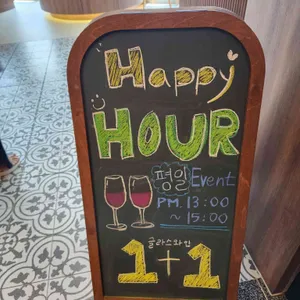 Happy
HOUR
평일 Event
PM. 13:00
~ 15:00
글라스와인
1+1